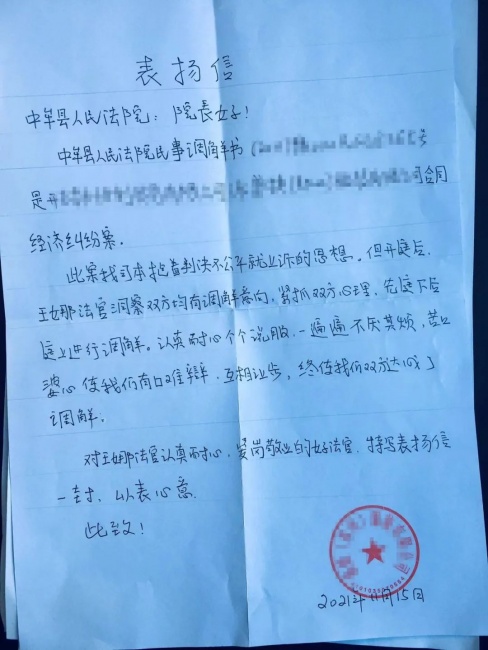 表扬信
中牟县人民法院：院长好！
中牟县人民法院民事调解书 号
是 司合同
经济纠纷案。
此案我司本抱着判决不公平就上诉的思想。但开庭后，
王娜法官洞察双方均有调解意向，紧抓双方心理，先庭下后
庭上进行调解。认真耐心个个说服，一遍遍不厌其烦，苦口
婆心使我们有口难辩，互相让步，终使我们双方达成了
调解。
对王娜法官认真耐心，爱岗敬业的好法官，特写表扬信
一封，以表心意。
此致！
2021年11月15日